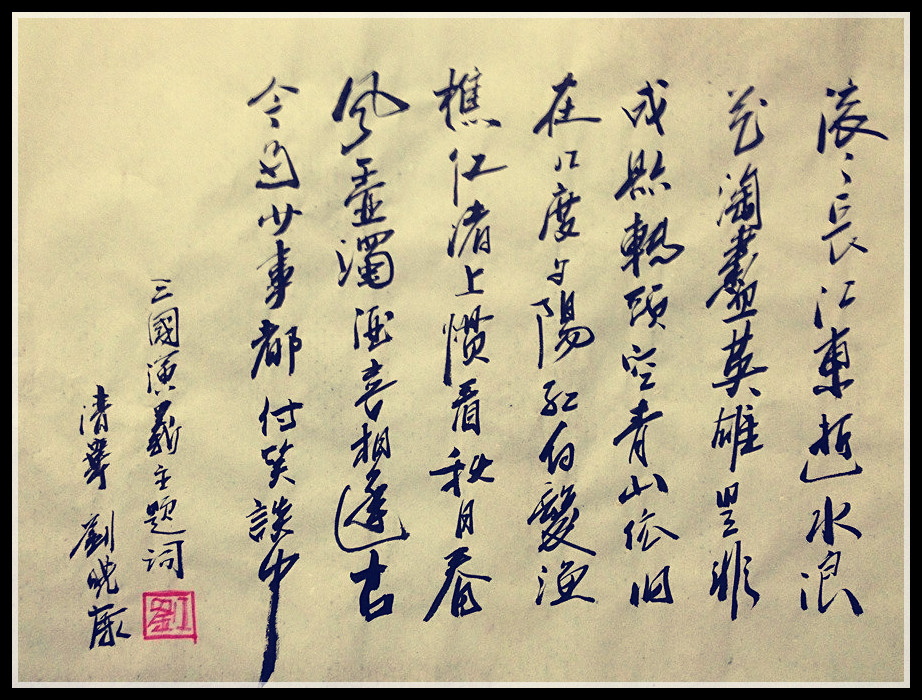 滚〻長江東逝水浪
花淘盡英雄是非
成敗轉頭空青山依旧
在几度夕陽红白髮渔
樵江渚上惯看秋月春
風一壺濁酒喜相逢古
今多少事都付笑談中
三國演義主题词
清 劉晓康
劉